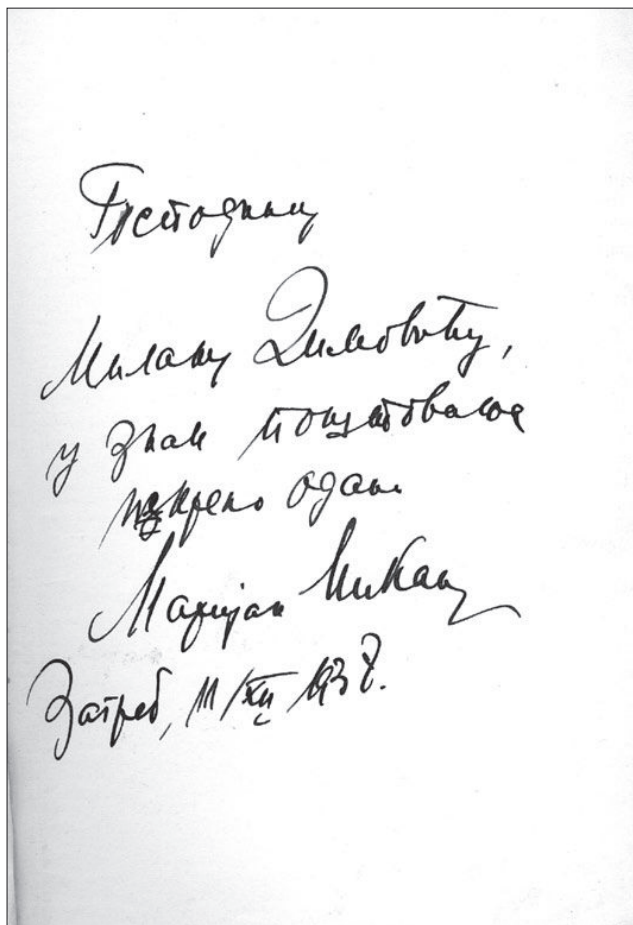 Господину
Милану Димовићу,
у знак поштовања
искрено одан
Маријан Микац
Загреб, 11/XII 1938.